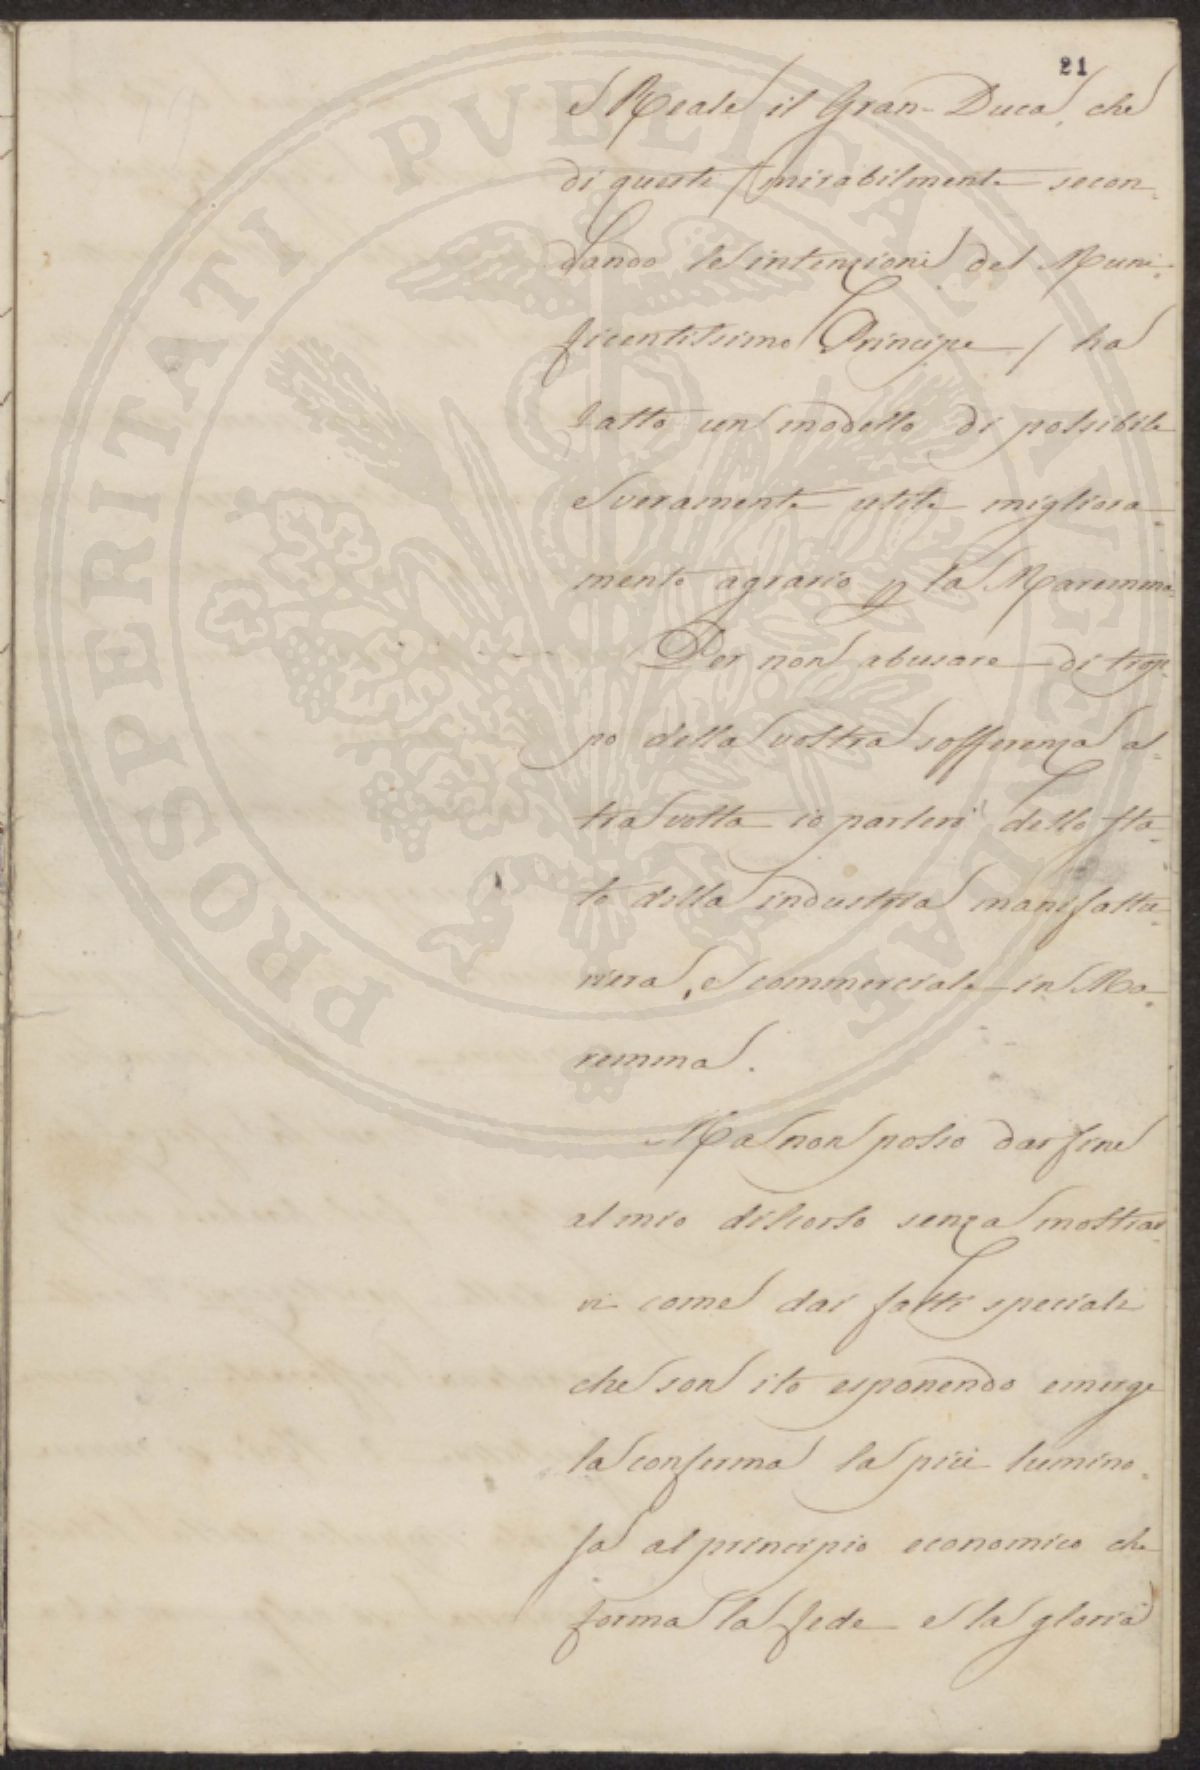 21
e Reale il Gran-Duca, che
di queste / mirabilmente secon-
dando le intenzioni del Muni-
ficentissimo Principe / ha
fatto un modello di possibile
e veramente utile migliora-
mento agrario p la Maremma.
Per non abusare di trop-
po della vostra sofferenza al-
tra volta io parlerò dello sta-
to della industria manifattu-
riera, e commerciale in Ma-
remma.
Ma non posso dar fine
al mio discorso senza mostrar-
vi come dai fatti speciali
che son ito esponendo emerge
la conferma la più lumino-
sa al principio economico che
forma la fede e la gloria
PROSPERITATI PUBLICAE AUGENDAE